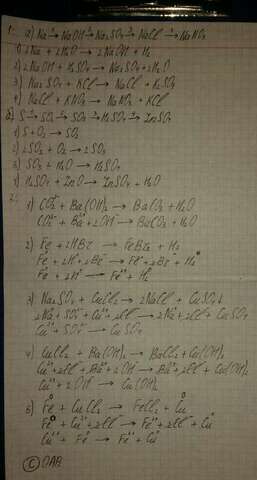 1. a) Na → NaOH → Na₂SO₄ → NaCl → NaNO₃
1) 2Na + 2H₂O → 2NaOH + H₂
2) 2NaOH + H₂SO₄ → Na₂SO₄ + 2H₂O
3) Na₂SO₄ + KCl → NaCl + K₂SO₄
4) NaCl + KNO₃ → NaNO₃ + KCl
б) S → SO₂ → SO₃ → H₂SO₄ → ZnSO₄
1) S + O₂ → SO₂
2) 2SO₂ + O₂ → 2SO₃
3) SO₃ + H₂O → H₂SO₄
4) H₂SO₄ + ZnO → ZnSO₄ + H₂O
2.
1) CO₂ + Ba(OH)₂ → BaCO₃ + H₂O
2) Fe + 2HBr → FeBr₂ + H₂
Fe + 2H + 2Br⁻ → Fe + 2Br⁻ + H₂
Fe + 2H⁺ → Fe⁺⁺ + H₂
3) Na₂SO₄ + CuCl₂ → 2NaCl + CuSO₄↓
Cu⁺⁺ + SO₄⁻⁻ → CuSO₄
4) CuCl₂ + Ba(OH)₂ → BaCl₂ + Cu(OH)₂
Cu⁺⁺ + 2Cl⁻ + Ba⁺⁺ + 2OH⁻ → Ba⁺⁺ + 2Cl⁻ + Cu(OH)₂
Cu⁺⁺ + 2OH⁻ → Cu(OH)₂
5) Fe + CuCl₂ → FeCl₂ + Cu
Fe⁰ + Cu⁺⁺ + 2Cl⁻ → Fe⁺⁺ + 2Cl⁻ + Cu⁰
Cu⁺⁺ + Fe⁰ → Fe⁺⁺ + Cu⁰
© DAB